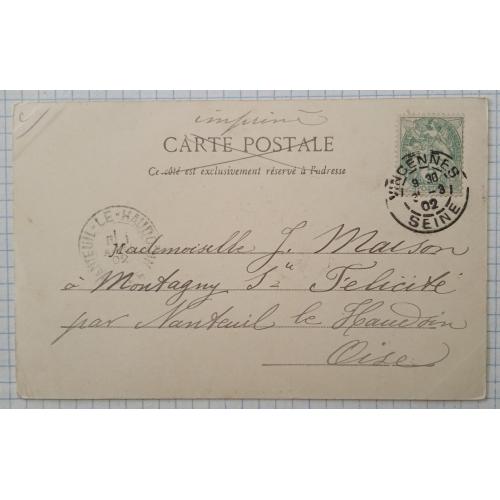 imprimé
CARTE POSTALE
Ce côté est exclusivement réservé à l'adresse
VINCENNES
9 30
02
SEINE
NANTEUIL-LE-HAUDOUIN
02
Mademoiselle J. Maison
à Montagny Ste Félicité
par Nanteuil le Haudoin
Oise